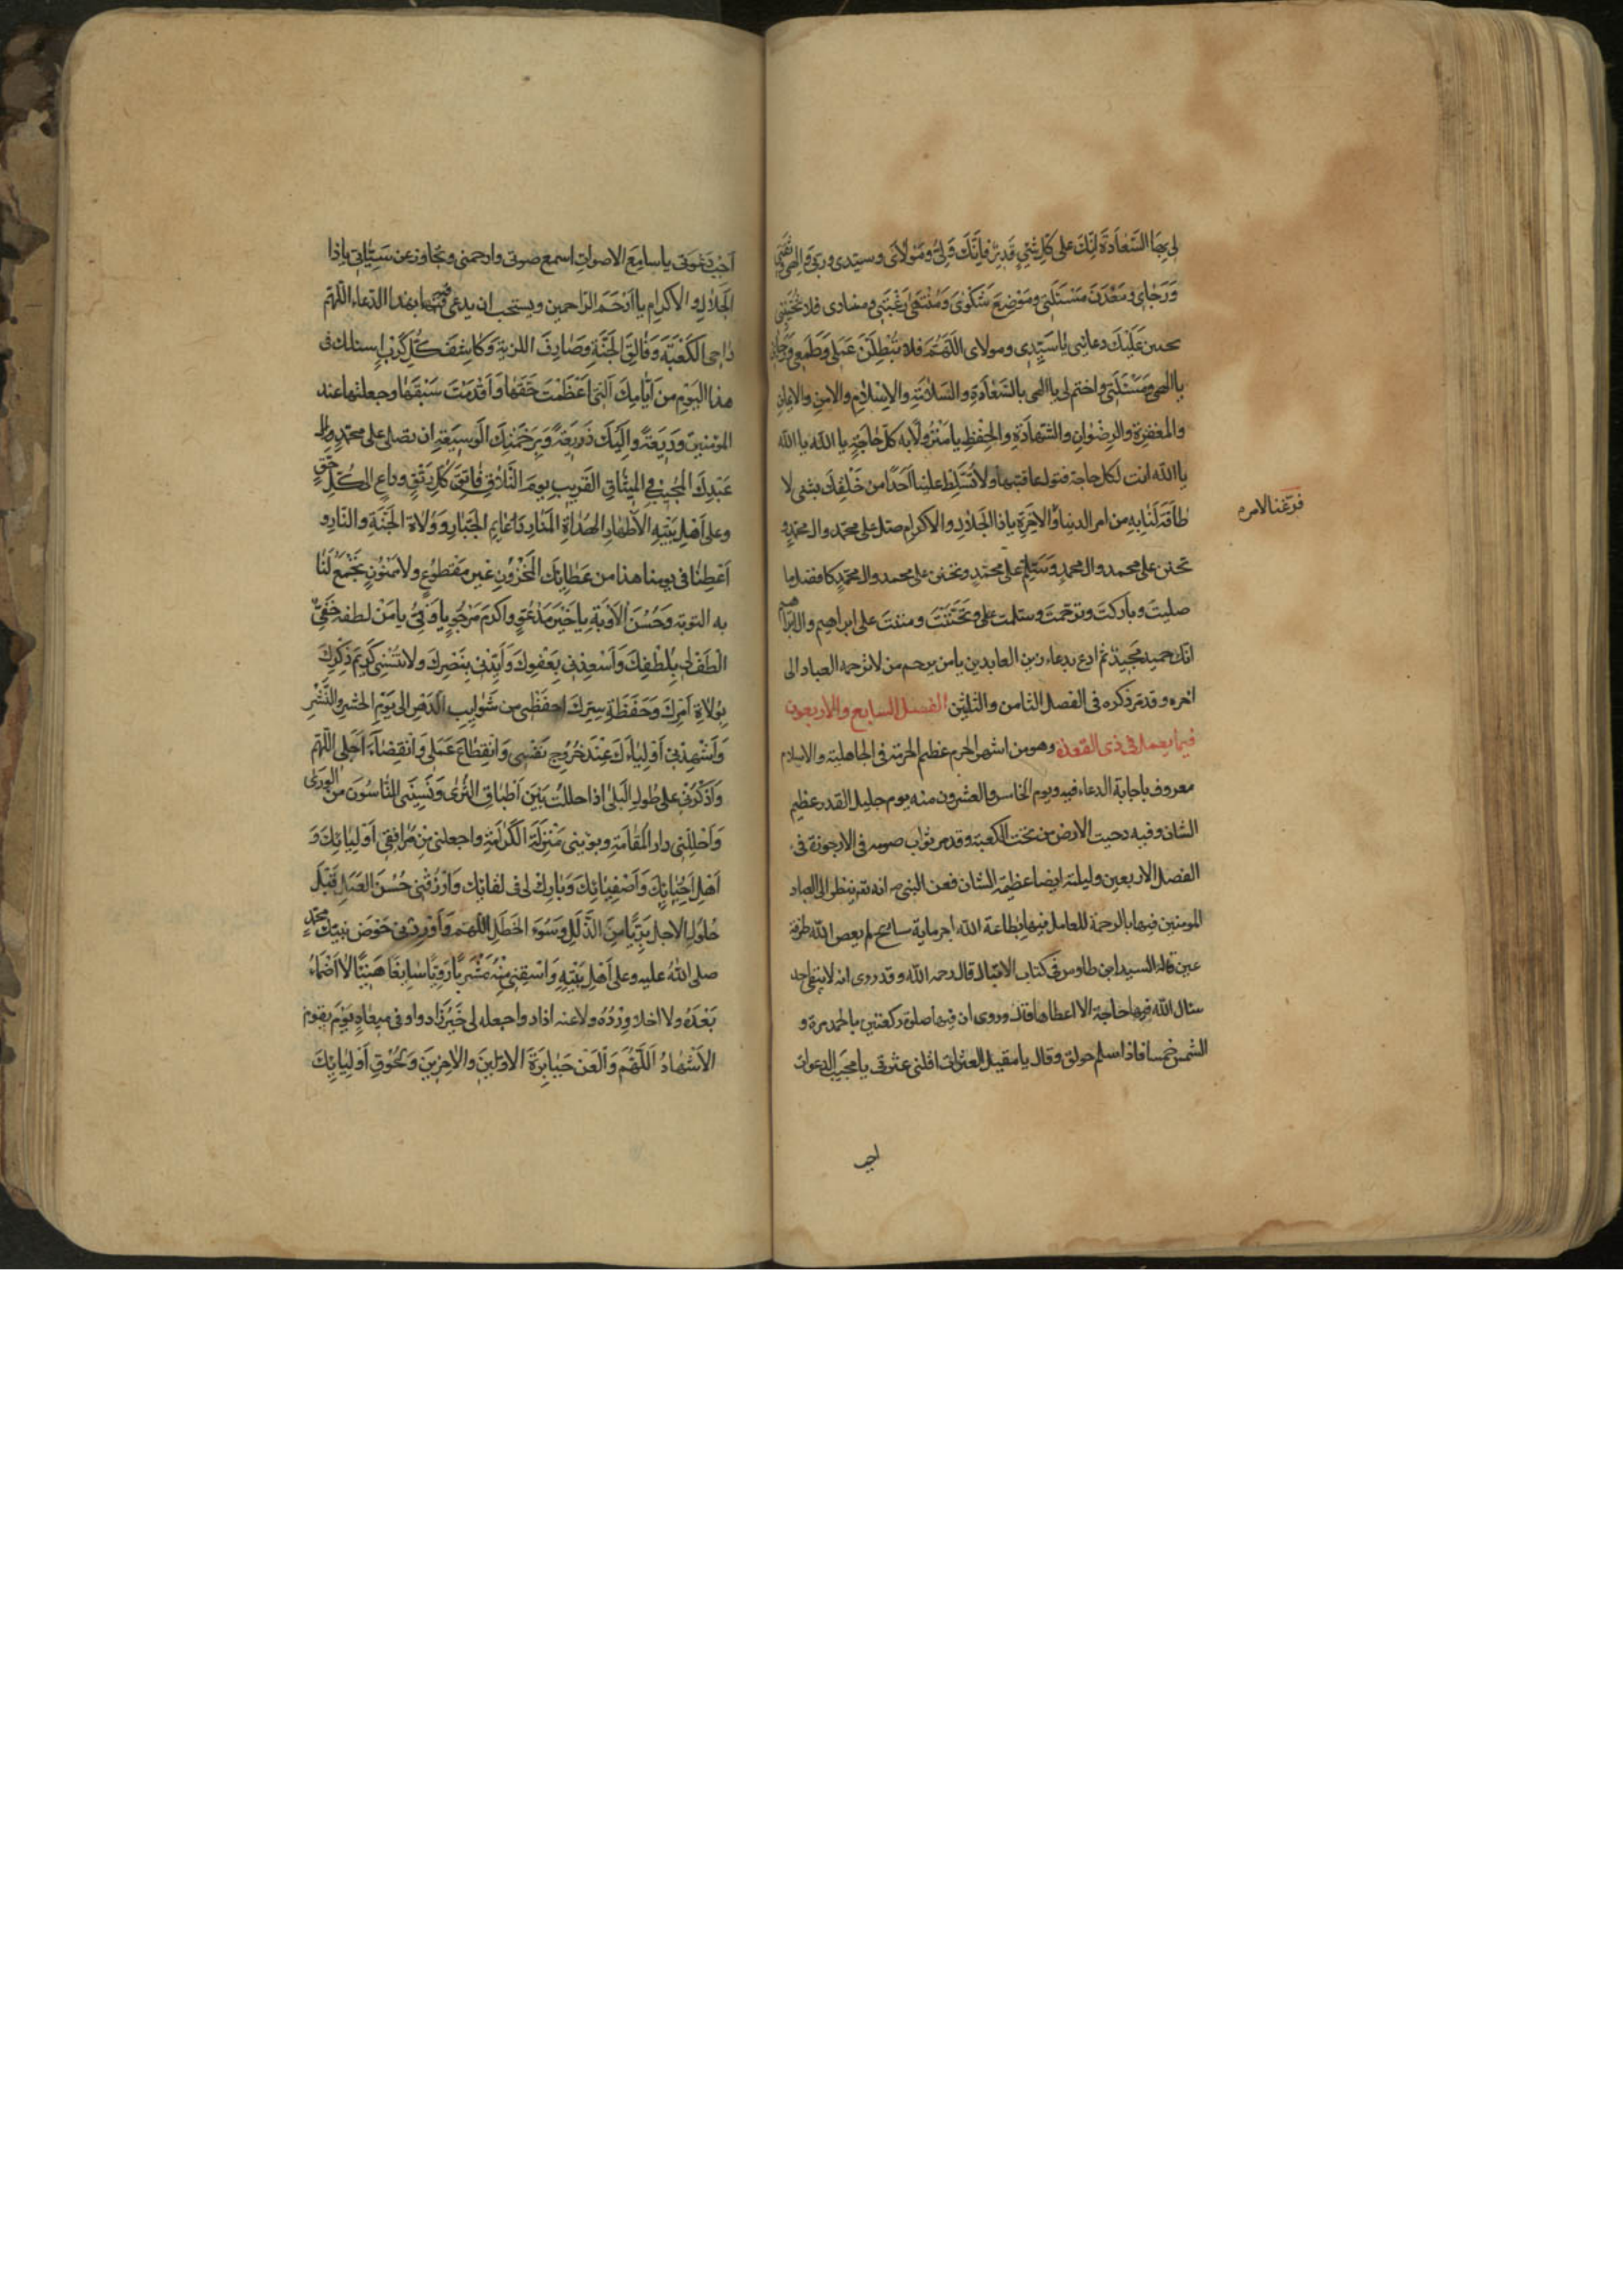 لي بِهَا السَّعَادَةَ اِنَّكَ عَلى كُلِّ شَيْءٍ قَدِيرٌ فَاِنَّكَ وَلِيِّي وَمَوْلَايَ وسيّدى وربّى وَاِلهى وثِقَتى
وَرَجَاى وَمَعْدَنَ مَسْئَلَتى وَمَوْضِعَ شَكْوَىٰ وَمُنْتَهىٰ رَغْبَتى ومنادى فلا تُخَيِّبَنى
عَلَيْكَ دعائى يا سَيِّدِى ومولاى اَللّهُمَّ فلا تُبْطِلَنَّ عَمَلى وَطَمَعى وَرَجائى
يا الهى وَمَسْئَلَتى واختم لى يا الهى بالسَّعَادَةِ والسَّلامَةِ والاِسْلامِ والامنِ والايمانِ
والمغفرة والرِضْوانِ والشَّهادَةِ والحِفْظِ يا مَنْزُولًا به كلّ حاجةٍ يا اللّه يا اللّه
يا اللّه انت لكل حاجة فتول عاقبتها ولا تُسَلِّط علينا اَحَدًا من خَلْقِكَ بشئى لا
طاقَةَ لَنا بِهِ من امر الدنيا وَالاخِرَةِ ياذا الجَلالِ والاكرام صلّ على محمّد وال محمّدٍ و
فرّغنا لامر م
تحنن على محمد وال محمدٍ وَسَلِّم على محمّدٍ وتحنن على محمد وال محمّدٍ كافضل ما
صليتَ وبَاركتَ وترحّمتَ وسلمت على وَتَحَنَّنْتَ ومننتَ على ابراهيم وال ابراهيم
انّك حميد مَجِيدٌ ثم ادع بدعاء زين العابدين يا من يرحم من لا ترحمه العباد الى
اخره وقد مرّ ذكره فى الفصل الثامن والثلثين الفصل السابع والاربعون
فيما يعمل فى ذى القعدة وهو من اشهر الحرم عظيم الحرمة فى الجاهلية والاسلام
معروف باجابة الدعاء فيه ويوم الخامس والعشرون منه يوم جليل القدر عظيم
الشان وفيه دحيت الارض من تحت الكعبة وقد مر ثواب صومه فى الارجوزة فى
الفصل الاربعين وليلته ايضا عظيمة الشان فعن النبى ص انه تعر ينظر الى العباد
المومنين فيها بالرحمة للعامل فيها بطاعة اللّه اجر ماية سايح لم يعص اللّه طرفة
عين قاله السيد ابن طاوس فى كتاب الاقبال قال رحمه اللّه وقد روى انه لا يبقى احد
سئال اللّه فيها حاجة الا اعطاها قال وروى ان فيها صلوة ركعتين بالحمد مرة و
الشمس خمسا فاذا سلم حولق وقال يا مقيل العثرات اقلنى عثرتى يا مجيب الدعوات
اجب
اَجِبْ دَعْوَتى يا سامِعَ الاصواتِ اسمع صوتى وارحمنى وتجاوز عن سَيِّئاتى ياذا
الجَلالِ والاكرام يا اَرْحَمَ الرّاحمين ويستحب ان يدعى فيها بهذا الدّعاء اللّهمّ
داحى الكَعْبَةِ وَفالِقَ الحَبَّةِ وَصارِفَ اللزبة وَكاشِفَ كُلِّ كُرْبٍ اسئلك فى
هذا اليَوْم من اَيّامِكَ الّتى اَعْظَمْتَ حَقَّها وَاَقْدَمْتَ سَبْقَها وجعلتها عند
المؤمنين وَديعَةً وَاِلَيْكَ ذَريعَةً وَبِرَحْمَتِكَ الوَسيعَةِ ان تصلى على محمّدٍ وال
عَبْدِكَ المُجيب فى الميثاقِ القَريبِ يومَ التَّلاقِ فاتِقَ كُلِّ رَتْقٍ وداعٍ الى كُلِّ حَقٍّ
وعلى اَهْلِ بَيْتِهِ الاَطْهارِ الهُدَاةِ المَنَارِ دَعائِم الجَبّارِ وَوُلاةِ الجَنّةِ والنّارِ و
اَعْطِنا فى يومنا هذا من عَطائِك المَخْزُونِ غير مَقْطوُعٍ ولا مَمْنُونٍ تَجْمَعُ لَنا
به التوبَة وَحُسْنَ الاَوْبَةِ يا خَيْرَ مَدْعُوٍّ واكرمَ مَرْجُوٍّ يا وَفِىُّ يا مَنْ لطفه خَفِىٌّ
الطف لى بِلُطْفِكَ وَاَسْعِدْنى بِعَفْوِكَ وَاَيِّدْنى بِنَصْرِكَ ولا تُنْسِنى كَرِيمَ ذِكْرِكَ
بِوُلاةِ اَمْرِكَ وَحَفَظَةِ سِرِّكَ احفَظْنى من شَوائِبِ الدّهْرِ الى يَوْمِ الحَشرِ والنَّشْرِ
وَاَشْهِدْنى اَوْلِياءَكَ عِنْدَ خُرُوجِ نَفْسى وَانْقِطاعِ عَمَلى وَانْقِضاءِ اَجَلى اللّهمّ
وَاذْكُرْنى على طُولِ البَلىٰ اذا حللتُ بَيْنَ اَطْباقِ الثَّرىٰ وَنَسِيَنى النّاسُونَ من الوَرىٰ
وَاَحْلِلْنى دار المُقامَةِ وبوّئنى مَنْزِلَةَ الكَرامَةِ واجعلنى مِنْ مُرافِقى اَوْلِيائِكَ وَ
اَهْلِ اَحِبّائِكَ وَاَصْفِيائِكَ وَبارِكْ لى فى لقائِكَ وَارْزُقْنى حُسْنَ العَمَلِ قَبْلَ
حُلُولِ الاجل بَريًّا مِنَ الزَّلَلِ وَسُوءِ الخَطَلِ اللّهمّ وَاَوْرِدْنى حَوْضَ نبيّك محمّدٍ
صلى اللّهُ عليه وعلى اَهْلِ بَيْتِهِ وَاسْقِنى مِنْهُ مَشْرَبًا رَوِيًّا سايغًا هَنيئًا لا اَظْمَاُ
بَعْدَهُ ولا احلا وِرْدَهُ ولا عنه اذاد واجعله لى خَيْرَ زاد واوفى ميعادٍ يَوْمَ يقومُ
الاَشْهادُ اَللّهُمَّ وَالْعَنْ جَبابِرَةَ الاوّلينَ والاخِرينَ وَبِحُقُوقِ اَوْلِيائِكَ